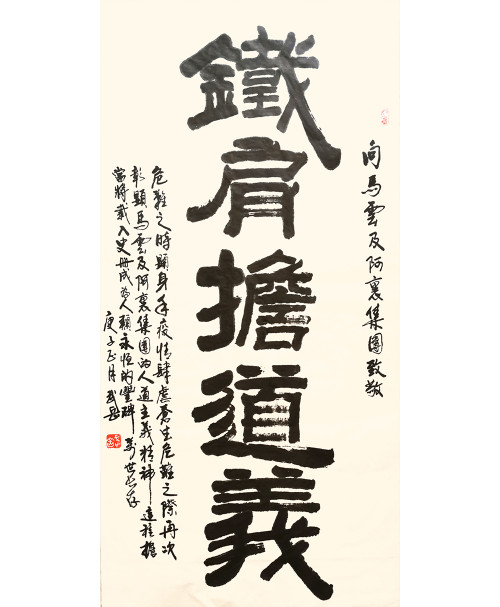 向馬雲及阿裏集團致敬
鐵肩擔道義
危難之時顯身手疫情肆虐蒼生危難之際再次
彰顯馬雲及阿裏集團的人道主義精神這種擔
當將載入史冊成为人類永恒的豐碑萬世長存
庚子正月